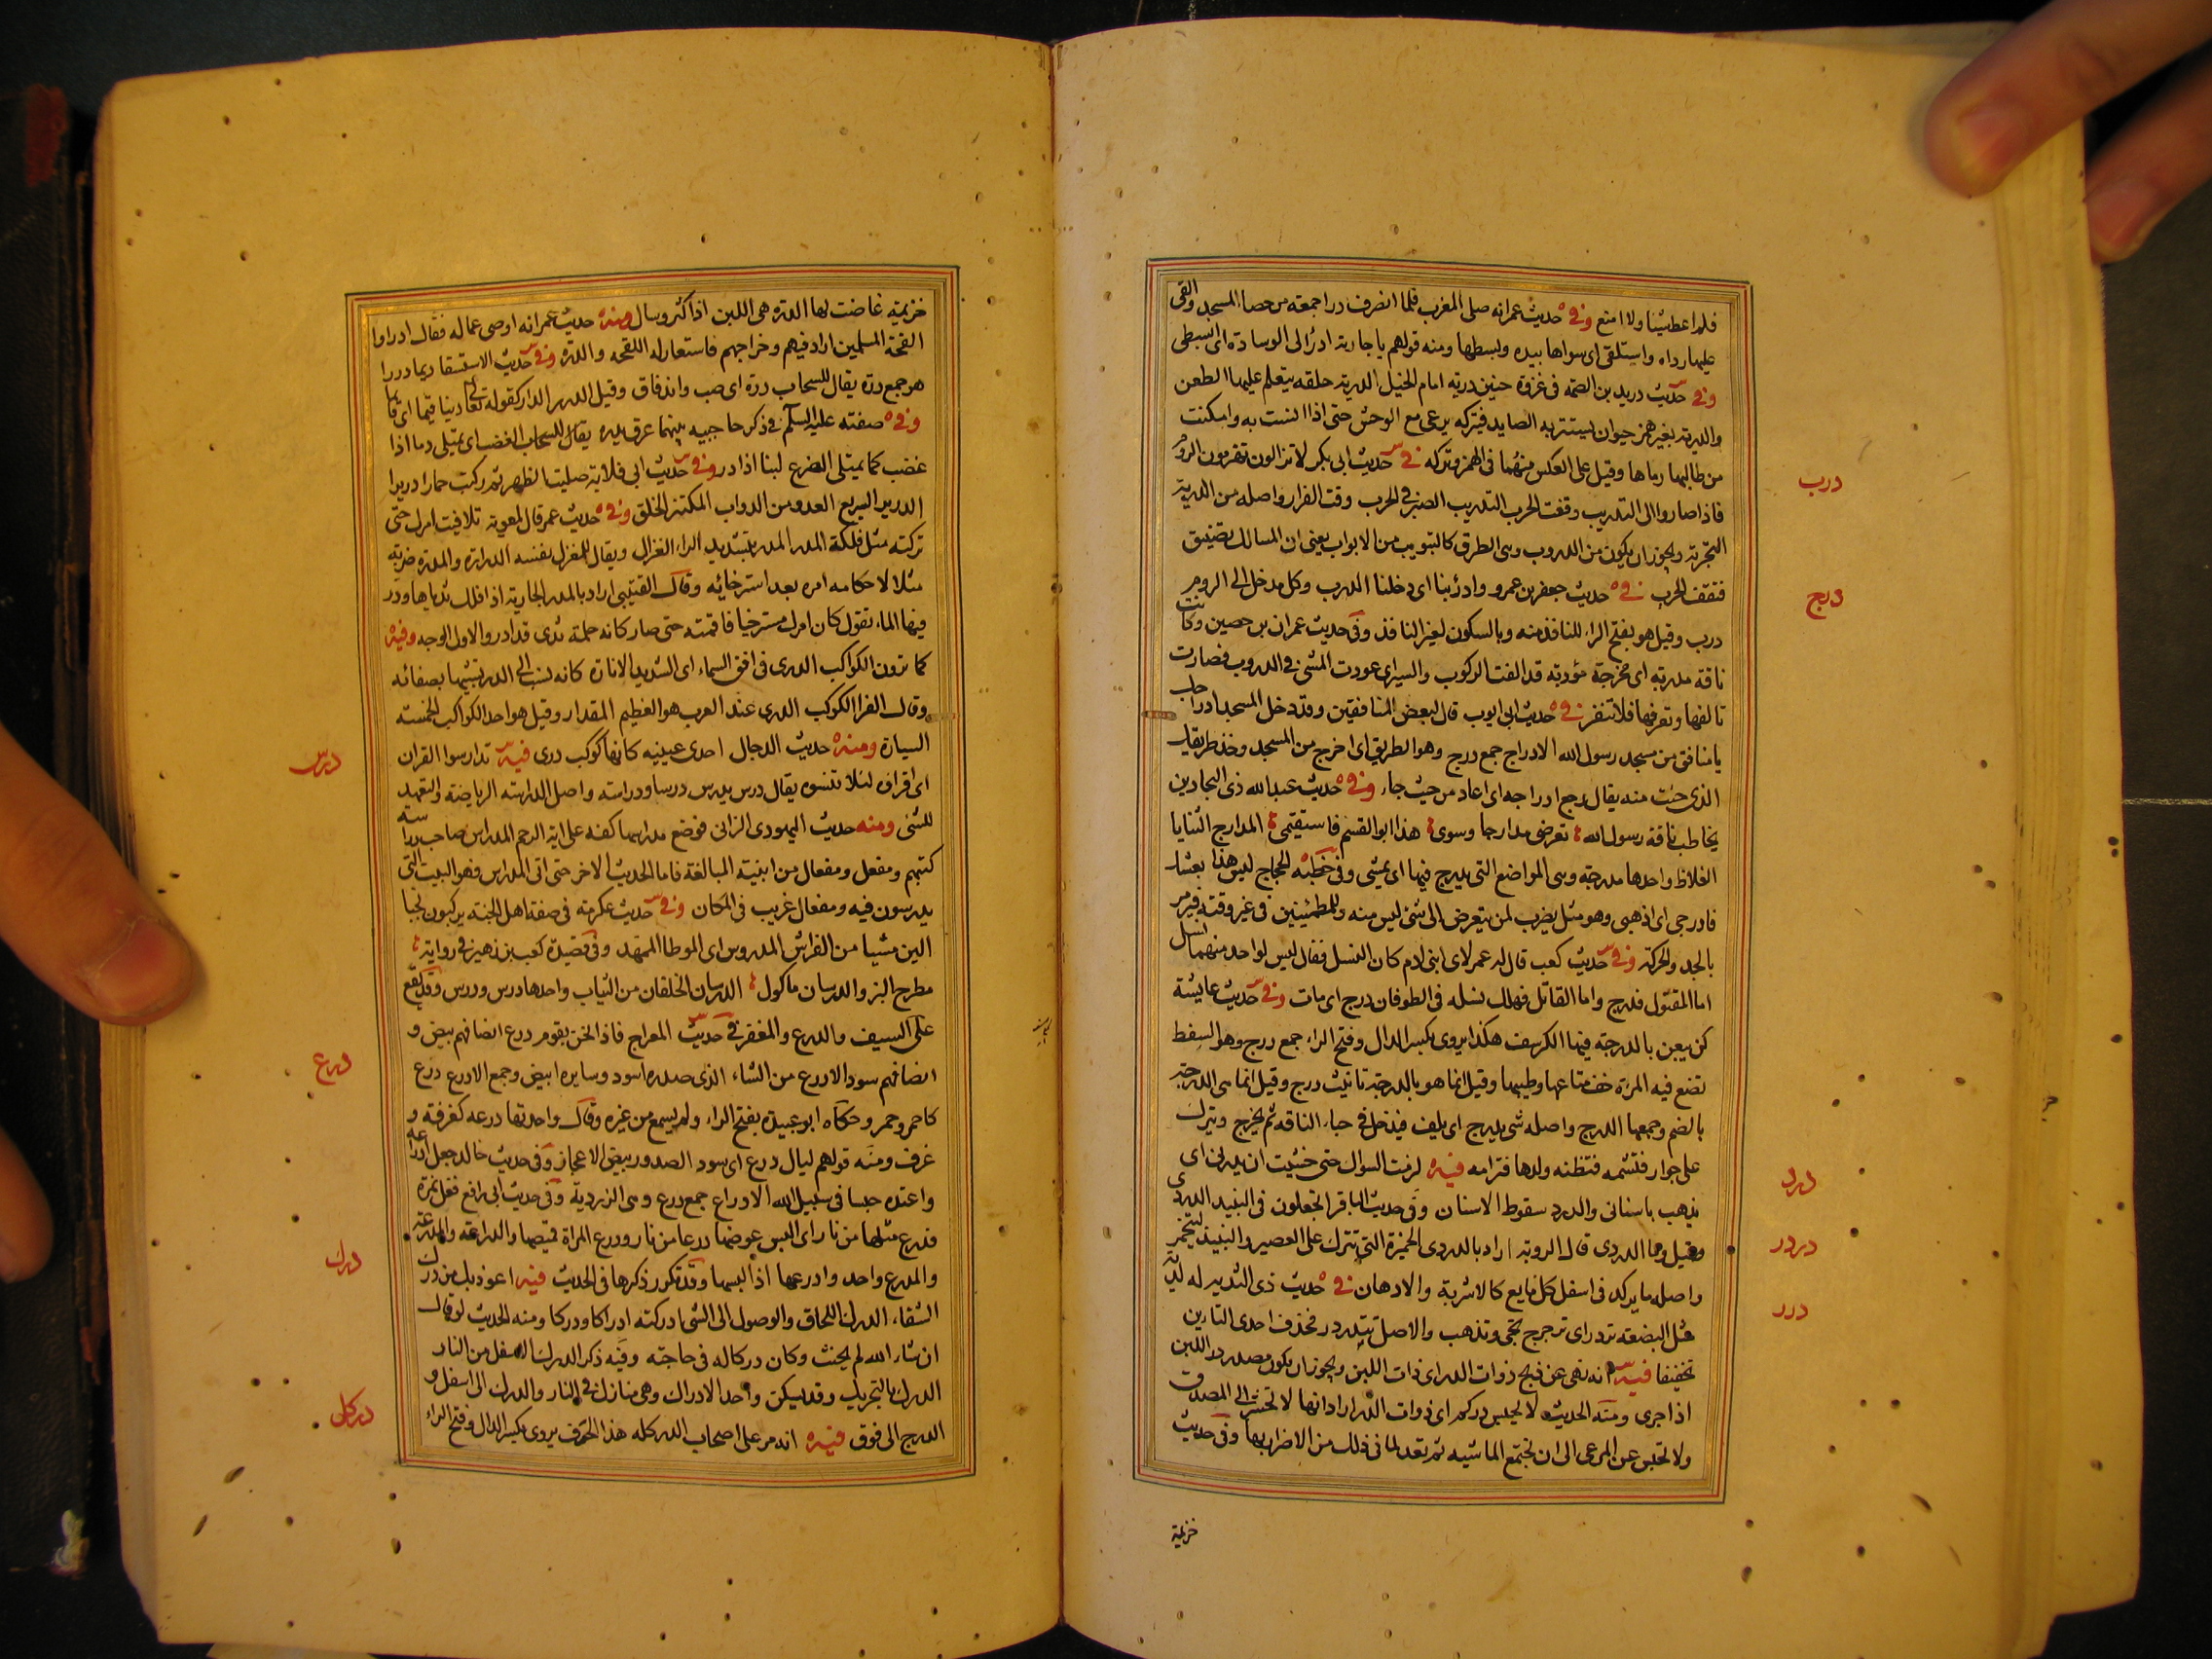 فلم اعطشينا ولا امنع وفي ه حديث عمر انه صلى المغرب فلما انصرف درا جمعة من حصا المسجد والقى
عليها رداءه واستلقى اى سواها بيده وبسطها ومنه قولهم يا جارية ادرئ الى الوسادة اى ابسطى
وفي س حديث دريد بن الصمة فى غزوة حنين درية امام الخيل الدرية حلقة يتعلم عليها الطعن
والدرية بغير همز حيوان يستتر به الصايد فيتركه يرعى مع الوحش حتى اذا انست به وامكنت
من طالبها رماها وقيل على العكس منهما فى الهمز وتركه في س حديث ابى بكر لا تزالون تهزمون الروم
درب
فاذا صاروا الى التدريب وقفت الحرب التدريب الصبر فى الحرب وقت الفرار واصله من الدربة
التجربة ويجوز ان يكون من الدروب وهى الطرق كالتبويب من الابواب يعنى ان المسالك تضيق
فتقف الحرب في ه حديث جعفر بن عمرو وادربنا اى دخلنا الدرب وكل مدخل الى الروم
درب وقيل هو بفتح الراء للنافذ منه وبالسكون لغير النافذ وفى حديث عمران بن حصين وكانت
ناقة مدربة اى مخرجة مؤدبة قد الفت الركوب والسير اى عودت المشى فى الدروب فصارت
تالفها وتعرفها فلا تنفر في ه حديث ابى ايوب قال لبعض المنافقين وقد دخل المسجد ادراجك
درج
يا منافق من مسجد رسول الله الادراج جمع درج وهو الطريق اى اخرج من المسجد وخذ طريقك
الذى جئت منه يقال رجع ادراجه اى عاد من حيث جاء وفي ه حديث عبد الله ذى البجادين
يخاطب ناقة رسول الله تعرضى مدارجا وسومى هذا ابو القسم فاستقيمى المدارج الثنايا
الغلاظ واحدها مدرجة وهى المواضع التى يدرج فيها اى يمشى وفى خطبة الحجاج ليس هذا بعشك
فادرجى اى اذهبى وهو مثل يضرب لمن يتعرض الى شئ ليس منه وللمطمئنين فى غير وقته فيؤمر
بالجد والحركة وفي س حديث كعب قال له عمر لاى ابنى ادم كان النسل فقال ليس لواحد منهما نسل
اما المقتول فدرج واما القاتل فهلك نسله فى الطوفان درج اى مات وفي س حديث عايشة
كن يبعثن بالدرجة فيها الكرسف هكذا يروى بكسر الدال وفتح الراء جمع درج وهو السفط
تضع فيه المرة خف متاعها وطيبها وقيل انما هو بالدرجة تانيث درج وقيل انما هى الدرجة
بالضم وجمعها الدرج واصله شئ يدرج اى يلف فيدخل فى حياء الناقة ثم يخرج ويترك
على حوار فتشمه فتظنه ولدها فترامه فيه ه لزمت السواك حتى خشيت ان يدردنى اى
درد
يذهب باسنانى والدرد سقوط الاسنان وفى حديث الباقر اتجعلون فى النبيذ الدردى
وقيل وما الدردى قال الروبة اراد بالدردى الخميرة التى تترك على العصير والنبيذ ليتخمر
دردر
واصله ما يركد فى اسفل كل مايع كالاشربة والادهان في ه حديث ذى الثدية له ثدية
مثل البضعة تدردر اى ترجرج تجئ وتذهب والاصل تتدردر فحذف احدى التائين
درر
تخفيفا فيه س انه نهى عن ذبح ذوات الدر اى ذات اللبن ويجوز ان يكون مصدر در اللبن
اذا جرى ومنه الحديث لا يحبس دركم اى ذوات الدر اراد انها لا تحشر الى المصدق
ولا تحبس عن المرعى الى ان تجتمع الماشية ثم تعد لما فى ذلك من الاضرار بها وفى حديث
خزيمة
خزيمة غاضت بها الدرة هى اللبن اذا كثر وسال ومنه ه حديث عمر انه اوصى عماله فقال ادروا
لقحة المسلمين اراد فيهم وخراجهم فاستعار له اللقحة والدرة وفي س حديث الاستسقا ديما دررا
هو جمع درة يقال للسحاب درة اى صب واندفاق وقيل الدرر الدار كقوله تعالى دينا قيما اى قايما
وفي ه صفته عليه السلم فى ذكر حاجبيه بينهما عرق يدره يقال للسحاب الغضب اى يمتلى دما اذا
غضب كما يمتلى الضرع لبنا اذا در وفي س حديث ابى قلابة صليت الظهر ثم ركبت حمارا دريرا
الدرير السريع العدو من الدواب المكتنز الخلق وفي ه حديث عمر قال لمعوية تلافيت امرك حتى
تركته مثل فلكة المدر المدر بتشديد الراء الغزال ويقال للمغزل نفسه الدرارة والمدرة ضربه
مثلا لاحكامه امره بعد استرخائه وقال القتيبى اراد بالمدر الجارية اذا فلك ثدياها ودر
فيها الماء يقول كان امرك مسترخيا فاقمته حتى صار كانه حلمة ثدى قد ادر والاول الوجه وفيه ه
كما ترون الكواكب الدرى فى افق السماء اى الشديد الانارة كانه نسب الى الدر تشبيها بصفائه
وقال الفرا الكوكب الدرى عند العرب هو العظيم المقدار وقيل هو احد الكواكب الخمسة
السيارة ومنه ه حديث الدجال احدى عينيه كانها كوكب درى فيه س تدارسوا القران
درس
اى اقراوه لئلا تنسوه يقال درس يدرس درسا ودراسة واصل الدراسة الرياضة والتعهد
للشئ ومنه حديث اليهودى الزانى فوضع مدراسها كفه على اية الرجم المدراس صاحب دراسة
كتبهم ومفعل ومفعال من ابنية المبالغة فاما الحديث الاخر حتى اتى المدراس فهو البيت التى
يدرسون فيه ومفعال غريب فى المكان وفي س حديث عكرمة فى صفة اهل الجنة يركبون نجبا
الين مشيا من الفراش المدروس اى الموطا الممهد وفى قصيدة كعب بن زهير فى رواية
مطرح البز والدرسان ماكول الدرسان الخلقان من الثياب واحدها درس ودرس وقد يقع
على السيف والدرع والمغفر فى س حديث المعراج فاذا نحن بقوم درع انصافهم بيض و
درع
انصافهم سود الادرع من الشاء الذى صدره اسود وسايره ابيض وجمع الادرع درع
كاحمر وحمر وحكاه ابو عبيدة بفتح الراء ولم يسمع من غيره وقال واحدتها درعه كغرفة و
غرف ومنه قولهم ليال درع اى سود الصدور بيض الاعجاز وفى حديث خالد جعل ادراعه
واعتده حبسا فى سبيل الله الادراع جمع درع وهى الزردية وفى حديث ابى رافع فغل نمرة
فدرع مثلها من نار اى البس عوضها درعا من نار ودرع المراة قميصها والدراعة والمدرعة
والمدرع واحد وادرعها اذا لبسها وقد تكرر ذكرها فى الحديث فيه اعوذ بك من درك
درك
الشقاء الدرك اللحاق والوصول الى الشئ ادركته ادراكا ودركا ومنه الحديث لو قال
ان شاء الله لم يحنث وكان دركا له فى حاجته وفيه ذكر الدرك الاسفل من النار
الدرك بالتحريك وقد يسكن واحد الادراك وهى منازل فى النار والدرك الى اسفل و
الدرج الى فوق فيه ه انه مر على اصحاب الدركلة هذا الحرف يروى بكسر الدال وفتح الراء
دركل